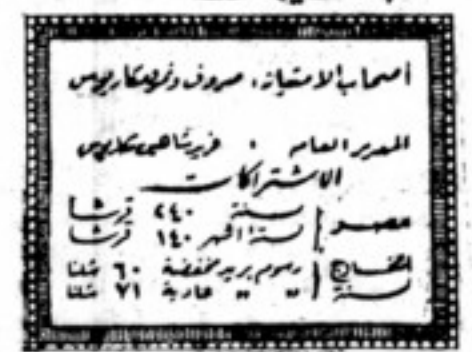 أصحاب الامتياز : صروف ونمر ومكاريوس
المدير العام : فريد شاهين مكاريوس
الاشتراكات
مصر سنة ٢٤٠ قرشا
ستة اشهر ١٤٠ قرشا
الخارج رسوم بريد مخفضة ٦٠ شلنا
سنة " " عادية ٧١ شلنا